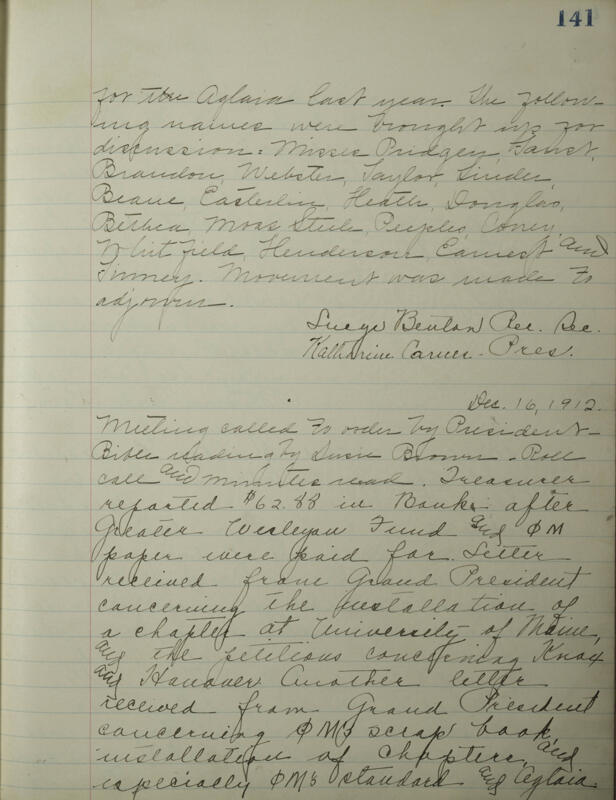 141
for the Aglaia last year. The follow-
ing names were brought up for
discussion: Misses Pridgen, Gantt,
Brandon, Webster, Taylor, Linder,
Beane, Easterlin, Heath, Douglas,
Bethea, Moss, Steele, Peeples, Coney,
Whitfield, Henderson, Earnest and
Tunney. Movement was made to
adjourn.
Benton Rec. Sec.
Katharine Carner - Pres.
Dec. 16, 1912.
Meeting called to order by President -
Bible reading by Susie Brown. Roll
call and minutes read. Treasurer
reported $62.88 in Bank, after
Greater Wesleyan Fund and ΦM
paper were paid for. Letter
received from Grand President
concerning the installation of
a chapter at University of Maine,
and the petitions concerning Knox
and Hanover. Another letter
received from Grand President
concerning ΦM's scrap book,
installation of chapters, and
especially ΦM's standard and Aglaia